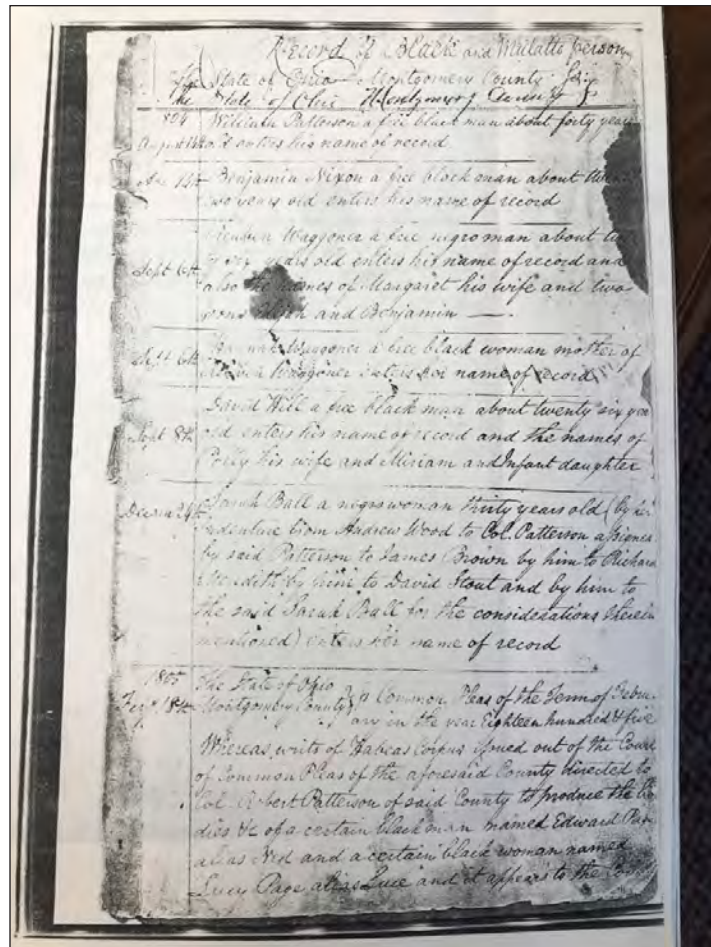 Record of Black and Mulatto person
The State of Ohio Montgomery County
the State of Ohio Montgomery County
804 William Patterson a free black man about forty years
August enters his name of record
Benjamin Nixon a free black man about
two years old enters his name of record
Reuben Waggoner a free negro man about
Sept 6th six years old enters his name of record and
also the names of Margaret his wife and two
sons and Benjamin
Sept 6th Hannah Waggoner a free black woman mother of
Waggoner enters her name of record
David Hill a free black man about twenty six
Sept 8th old enters his name of record and the names of
Polly his wife and Miriam and Infant daughter
24th Sarah Ball a negro woman thirty years old (by her
indenture from Andrew Wood to Col. Patterson
by said Patterson to James Brown by him to Richard
Meredith by him to David Stout and by him to
the said Sarah Ball for the considerations therein
mentioned) enters her name of record
1805 The State of Ohio
Montgomery County Common Pleas of the Term of Febru
ary in the year Eighteen hundred & five
Whereas writs of Habeas Corpus issued out of the Court
of Common Pleas of the aforesaid County directed to
Col. Robert Patterson of said County to produce the bo
dies &c of a certain black man named Edward
alias Ned and a certain black woman named
Lucy Page alias Luce and it appears to the